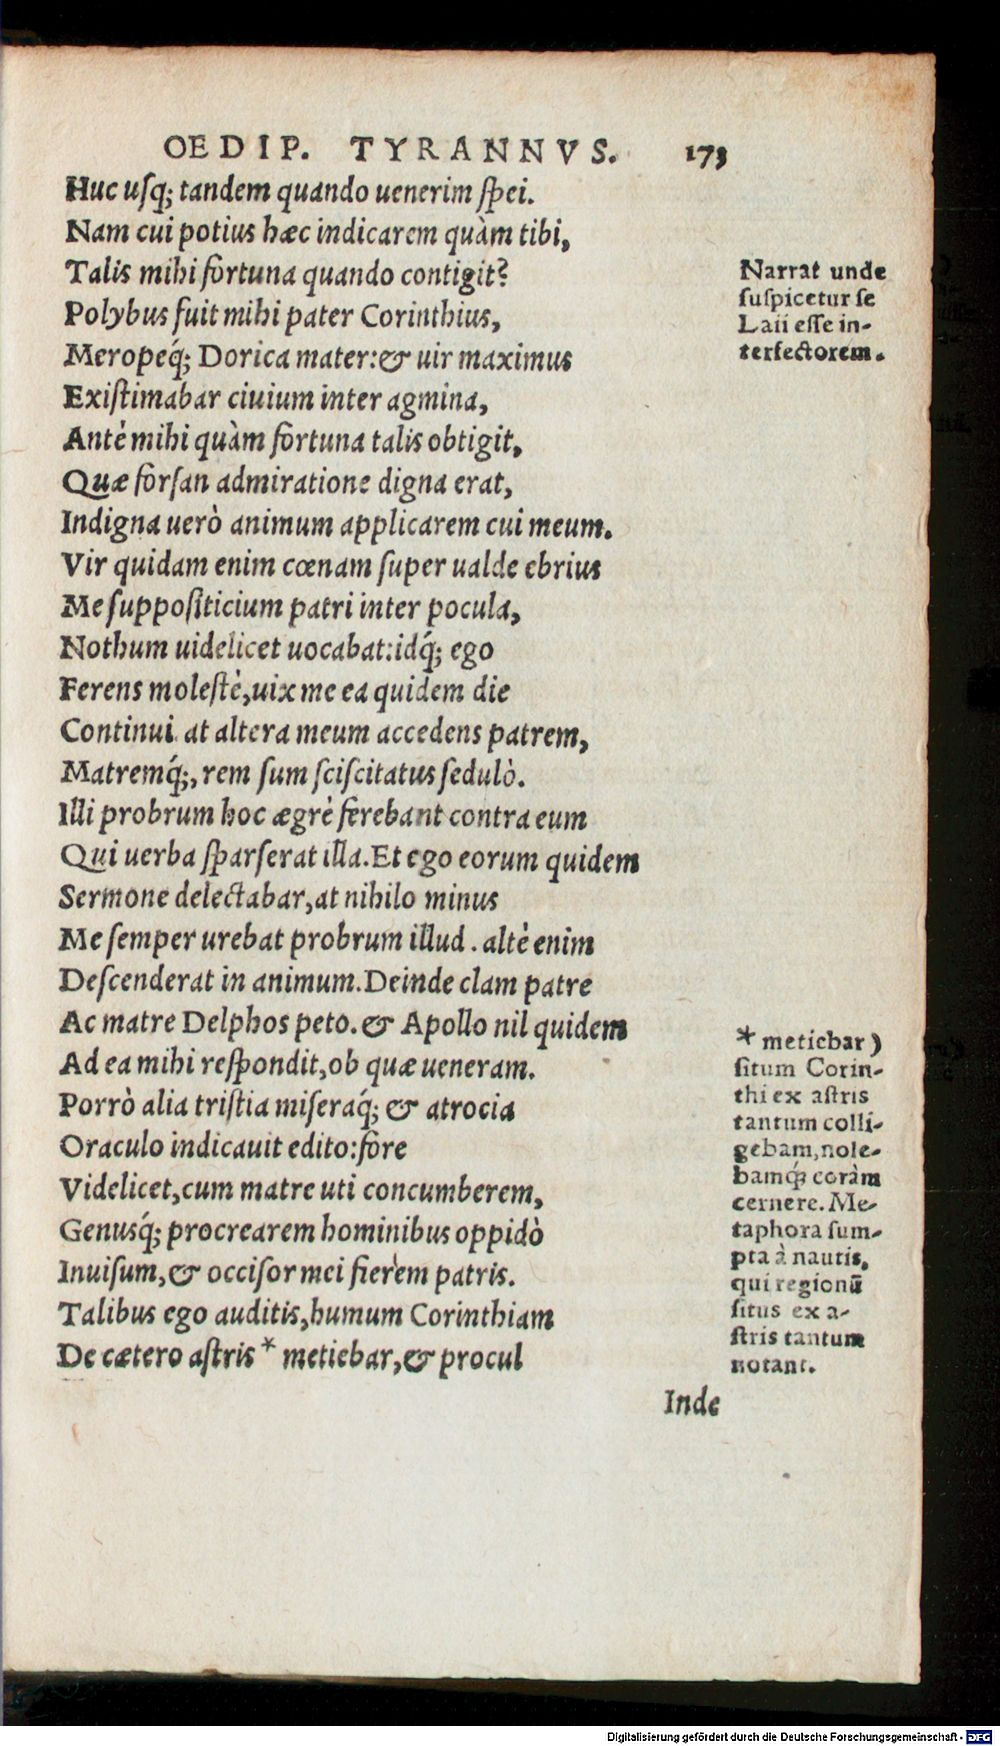 OEDIP. TYRANNVS. 173
Huc uſq; tandem quando uenerim ſpei.
Nam cui potius hæc indicarem quàm tibi,
Talis mihi fortuna quando contigit?
Polybus fuit mihi pater Corinthius,
Meropeq́; Dorica mater:& uir maximus
Exiſtimabar ciuium inter agmina,
Antè mihi quàm fortuna talis obtigit,
Quæ forſan admiratione digna erat,
Indigna uerò animum applicarem cui meum.
Vir quidam enim cœnam ſuper ualde ebrius
Me ſuppoſiticium patri inter pocula,
Nothum uidelicet uocabat:idq́; ego
Ferens moleſtè,uix me ea quidem die
Continui. at altera meum accedens patrem,
Matremq́;, rem ſum ſciſcitatus ſedulò.
Illi probrum hoc ægrè ferebant contra eum
Qui uerba ſparſerat illa.Et ego eorum quidem
Sermone delectabar,at nihilo minus
Me ſemper urebat probrum illud. altè enim
Deſcenderat in animum.Deinde clam patre
Ac matre Delphos peto.& Apollo nil quidem
Ad ea mihi reſpondit,ob quæ ueneram.
Porrò alia triſtia miſeraq́; & atrocia
Oraculo indicauit edito:fore
Videlicet,cum matre uti concumberem,
Genusq́; procrearem hominibus oppidò
Inuiſum,& occiſor mei fierem patris.
Talibus ego auditis,humum Corinthiam
De cætero aſtris * metiebar,& procul
Inde
Narrat unde
ſuſpicetur ſe
Laii eſſe in-
terfectorem.
* metiebar)
ſitum Corin-
thi ex aſtris
tantum colli-
gebam,nole-
bamq́; coràm
cernere. Me-
taphora ſum-
pta à nautis,
qui regionū
ſitus ex a-
ſtris tantum
notant.
Digitalisierung gefördert durch die Deutsche Forschungsgemeinschaft - DFG